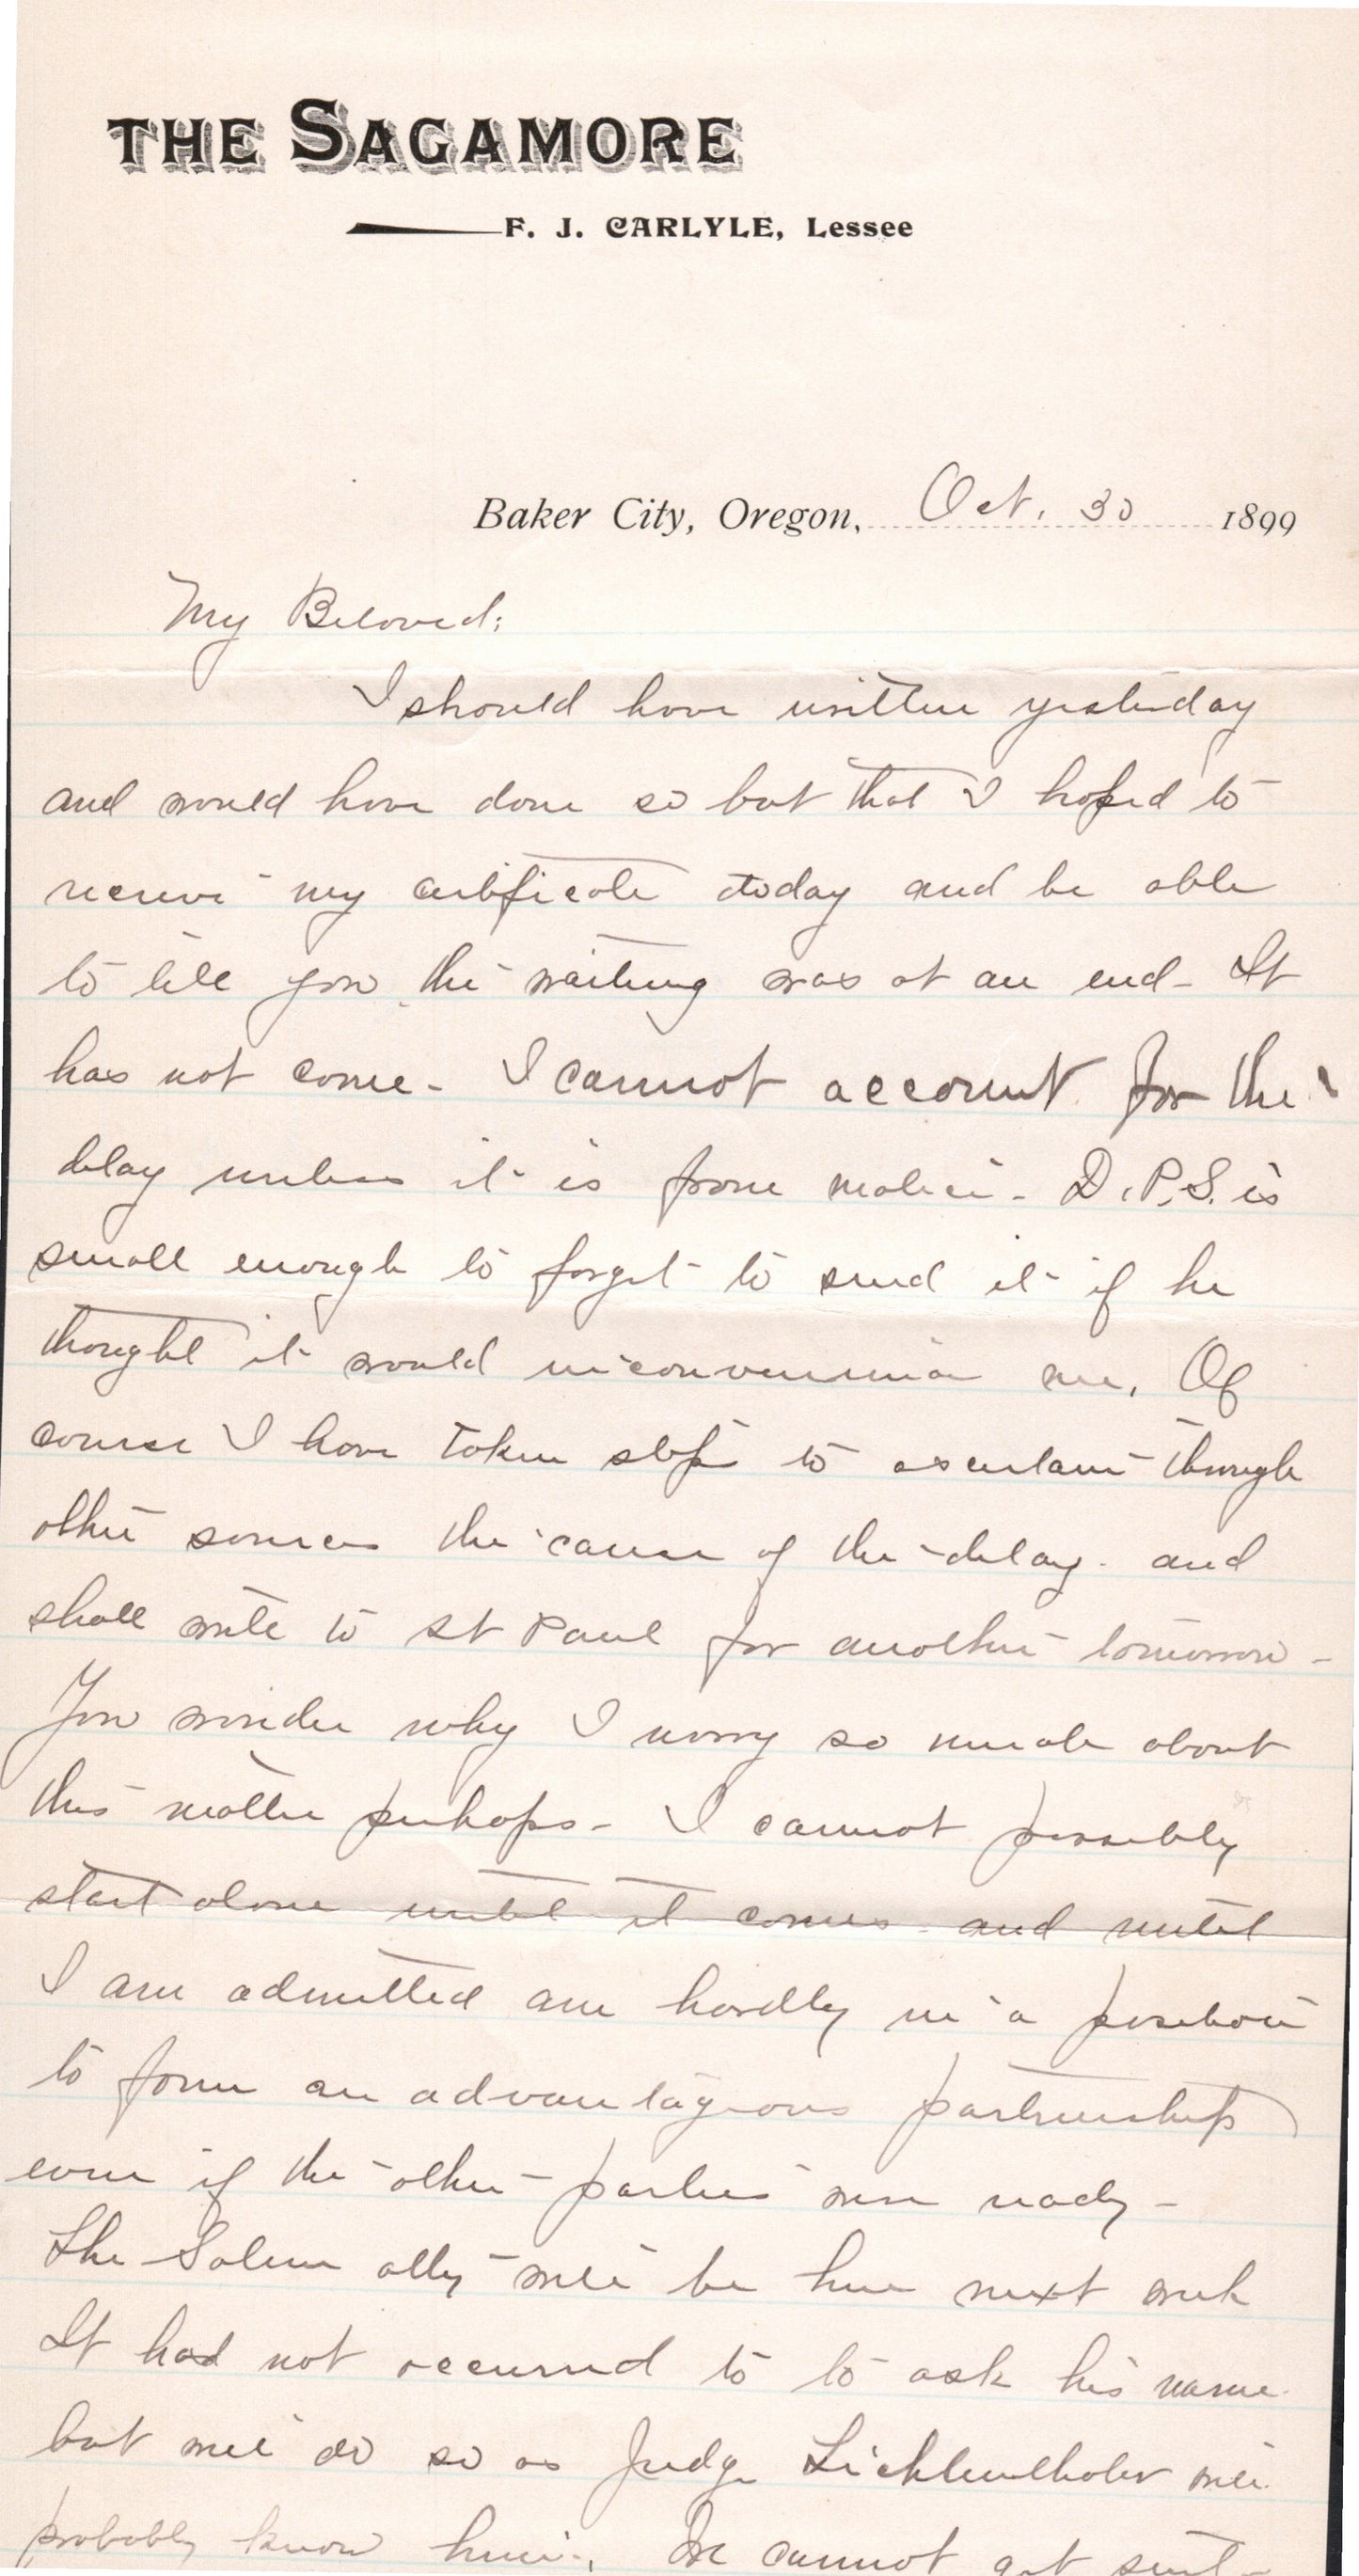 THE SAGAMORE
F. J. CARLYLE, Lessee
Baker City, Oregon, Oct. 30 1899
My Beloved:
I should have written yesterday
and would have done so but that I hoped to
receive my certificate today and be able
to tell you the waiting was at an end - It
has not come - I cannot account for the
delay unless it is from malice - D.P.S. is
small enough to forget to send it if he
thought it would inconvenience me. Of
course I have taken steps to ascertain through
other sources the cause of the delay - and
shall write to St Paul for another tomorrow -
You wonder why I worry so much about
this matter perhaps - I cannot possibly
start alone until it comes - and until
I am admitted am hardly in a position
to form an advantageous partnership
even if the other parties were ready -
The Salem atty will be here next week
It had not occurred to to ask his name
but will do so as Judge will
probably know him. We cannot get